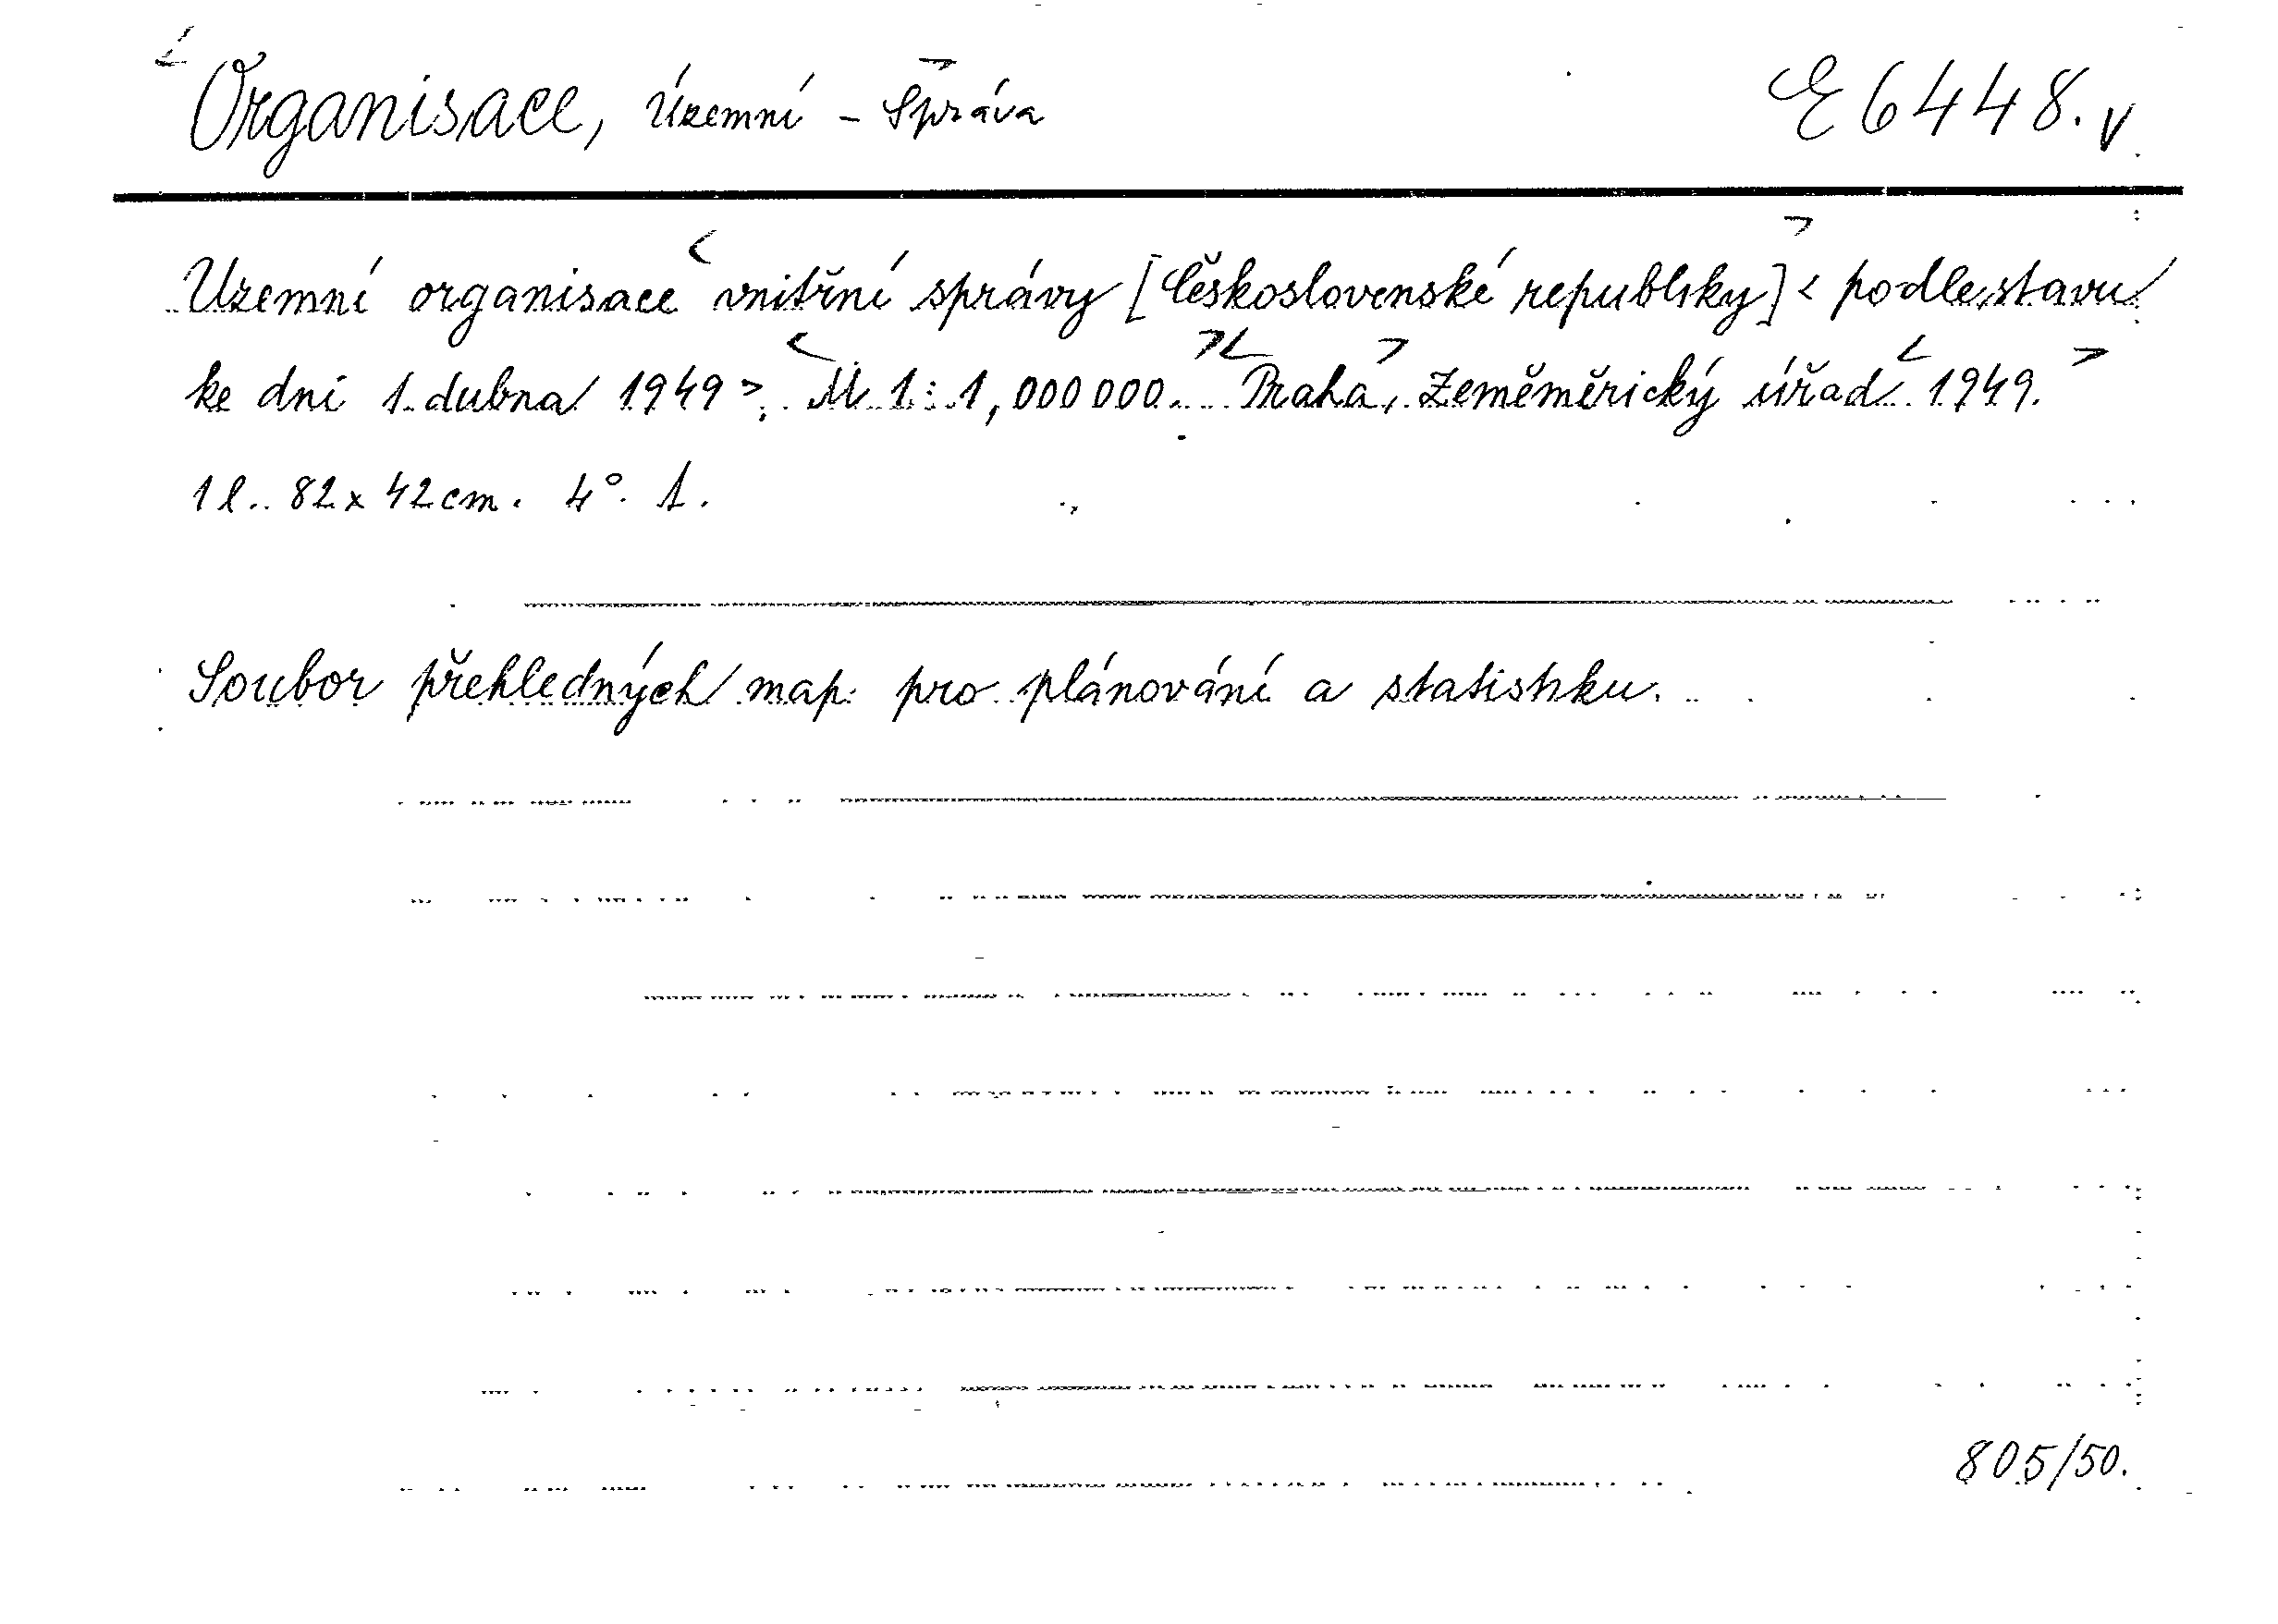 Organisace, územní - Správa E 6448.v
Uzemní organisace vnitřní správy [Československé republiky] < podle stavu
ke dni 1. dubna 1949 >. M 1 : 1,000 000. Praha, Zeměměrický úřad 1949.
1 l. 82 x 42 cm. 4°. 1.
Soubor přehledných map pro plánování a statistiku.
805/50.